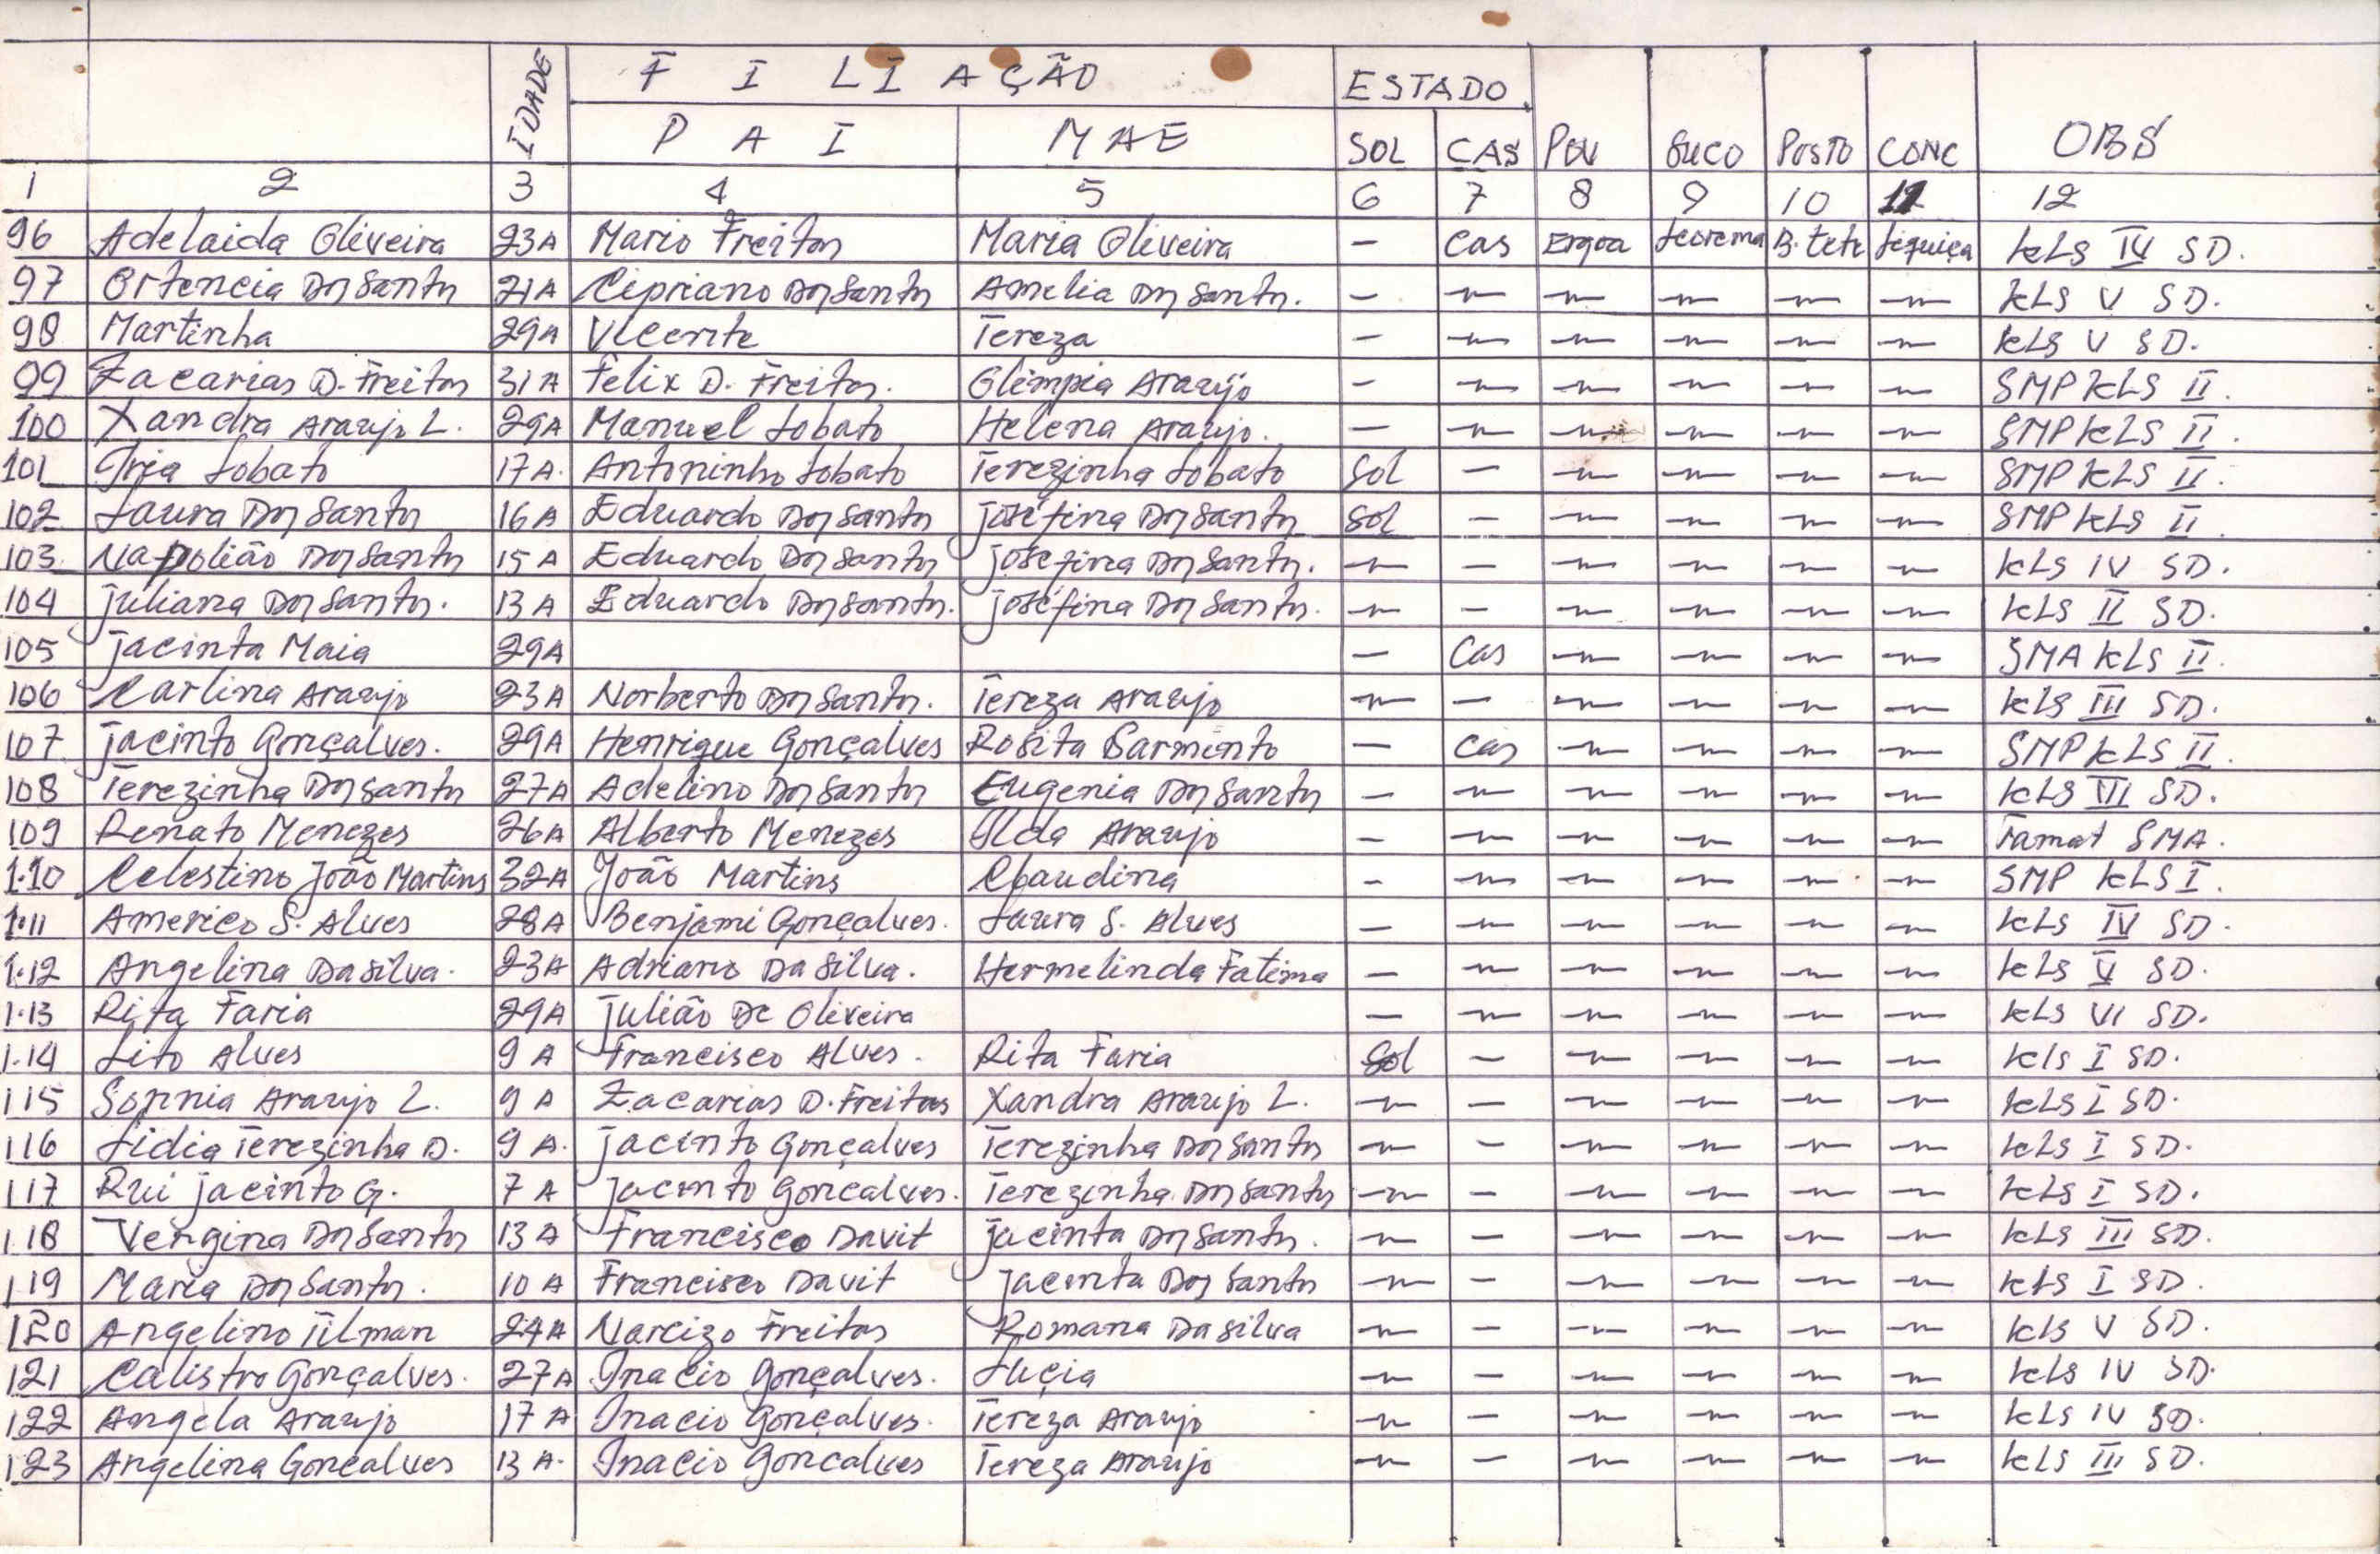 IDADE FILIAÇÃO ESTADO
PAI MAE SOL CAS POV SUCO POSTO CONC OBS
1 2 3 4 5 6 7 8 9 10 11 12
96 Adelaida Oliveira 23A Mario Freitas Maria Oliveira - Cas Ergoa Leorema B. tete Liquiça KLS IV SD.
97 Ortencia Dos Santos 21A Cipriano Dos Santos Amelia Dos Santos. - ~ ~ ~ ~ ~ KLS V SD.
98 Martinha 29A Vicente Tereza - ~ ~ ~ ~ ~ KLS V SD.
99 Zacarias D. Freitas 31A Felix D. Freitas. Olimpia Araujo - ~ ~ ~ ~ ~ SMP KLS II.
100 Xandra Araujo L. 29A Manuel Lobato Helena Araujo. - ~ ~ ~ ~ ~ SMP KLS II.
101 Iria Lobato 17A. Antoninho Lobato Terezinha Lobato Sol - ~ ~ ~ ~ SMP KLS II.
102 Laura Dos Santos 16A Eduardo Dos Santos Josefina Dos Santos Sol - ~ ~ ~ ~ SMP KLS II.
103. Napolião Dos Santos 15A Eduardo Dos Santos Josefina Dos Santos. ~ - ~ ~ ~ ~ KLS IV SD.
104 Juliana Dos Santos. 13A Eduardo Dos Santos. Josefina Dos Santos. ~ - ~ ~ ~ ~ KLS II SD.
105 Jacinta Maia 29A - Cas ~ ~ ~ ~ SMA KLS II.
106 Carlina Araujo 23A Norberto Dos Santos. Tereza Araujo ~ - ~ ~ ~ ~ KLS III SD.
107 Jacinto Gonçalves. 29A Henrique Gonçalves Rosita Sarmento - Cas ~ ~ ~ ~ SMP KLS II.
108 Terezinha Dos Santos 27A Adelino Dos Santos Eugenia Dos Santos - ~ ~ ~ ~ ~ KLS VI SD.
109 Renato Menezes 26A Alberto Menezes Ilda Araujo - ~ ~ ~ ~ ~ Tamat SMA.
1.10 Celestino João Martins 32A João Martins Claudina - ~ ~ ~ ~ ~ SMP KLS I.
1.11 Americo S. Alves 28A Benjami Gonçalves. Laura S. Alves - ~ ~ ~ ~ ~ KLS IV SD.
1.12 Angelina Da Silva. 23A Adriano Da Silva. Hermelinda Fatima - ~ ~ ~ ~ ~ KLS V SD.
1.13 Rita Faria 29A Julião De Oliveira - ~ ~ ~ ~ ~ KLS VI SD.
1.14 Lito Alves 9A Francisco Alves. Rita Faria Sol - ~ ~ ~ ~ Kls I SD.
115 Sonnia Araujo L. 9A Zacarias D. Freitas Xandra Araujo L. ~ - ~ ~ ~ ~ KLS I SD.
116 Lidia Terezinha D. 9A. Jacinto Gonçalves Terezinha Dos Santos ~ - ~ ~ ~ ~ KLS I SD.
117 Rui Jacinto G. 7A Jacinto Goncalves. Terezinha Dos Santos ~ - ~ ~ ~ ~ KLS I SD.
118 Vergina Dos Santos 13A Francisco Davit Jacinta Dos Santos. ~ - ~ ~ ~ ~ KLS III SD.
119 Maria Dos Santos. 10A Francisco Davit Jacinta Dos Santos ~ - ~ ~ ~ ~ KLS I SD.
120 Angelino Tilman 24A Narcizo Freitas Romana Da silva ~ - ~ ~ ~ ~ KLS V SD.
121 Calistro Gonçalves. 27A Inacio Gonçalves. Luçia ~ - ~ ~ ~ ~ KLS IV SD.
122 Angela Araujo 17A Inacio Gonçalves. Tereza Araujo ~ - ~ ~ ~ ~ KLS IV SD.
123 Angelina Goncalves 13A. Inacio Goncalves Tereza Araujo ~ - ~ ~ ~ ~ KLS III SD.